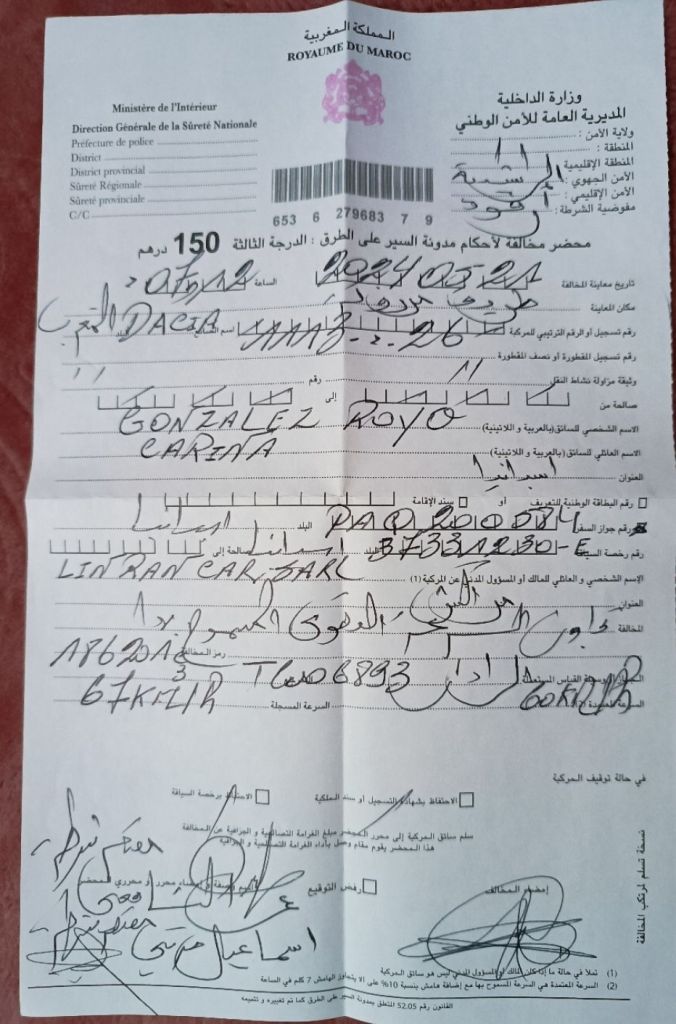 المملكة المغربية
ROYAUME DU MAROC
Ministère de l'Intérieur
Direction Générale de la Sûreté Nationale
Préfecture de police
District
District provincial
Sûreté Régionale
Sûreté provinciale
C/C
وزارة الداخلية
المديرية العامة للأمن الوطني
ولاية الأمن :
المنطقة :
المنطقة الإقليمية
الأمن الجهوي :
الأمن الإقليمي :
مفوضية الشرطة :
الراشيدية
أرفود
653 6 279683 7 9
محضر مخالفة لأحكام مدونة السير على الطرق : الدرجة الثالثة 150 درهم
تاريخ معاينة المخالفة 2024 05 21 الساعة 07h12
مكان المعاينة
رقم تسجيل أو الرقم الترتيبي للمركبة 26 DACIA المغرب
رقم تسجيل المقطورة أو نصف المقطورة
وثيقة مزاولة نشاط النقل // رقم //
صالحة من إلى
الاسم الشخصي للسائق(بالعربية و اللاتينية) GONZALEZ ROYO
الاسم العائلي للسائق(بالعربية و اللاتينية) CARINA
العنوان اسبانيا
رقم البطاقة الوطنية للتعريف أو سند الإقامة
رقم جواز السفر PAQ200584 البلد اسبانيا
رقم رخصة السياقة 37331230-E البلد اسبانيا صالحة إلى
الإسم الشخصي و العائلي للمالك أو المسؤول المدني عن المركبة (1) LINRAN CAR SARL
العنوان
المخالفة تجاوز السرعة القصوى المسموح بها
رمز المخالفة
الرادار
السرعة المعتمدة (2) 60KM/h السرعة المسجلة 67KM/h
في حالة توقيف المركبة
الاحتفاظ بشهادة التسجيل أو سند الملكية الاحتفاظ برخصة السياقة
سلم سائق المركبة إلى محرر المحضر مبلغ الغرامة التصالحية و الجزافية عن المخالفة
هذا المحضر يقوم مقام وصل بأداء الغرامة التصالحية و الجزافية
إمضاء المخالف رفض التوقيع
نسخة تسلم لمرتكب المخالفة
(1) تملأ في حالة ما إذا كان المالك أو المسؤول المدني ليس هو سائق المركبة
(2) السرعة المعتمدة هي السرعة المسموح بها مع إضافة هامش بنسبة 10% على ألا يتجاوز الهامش 7 كلم في الساعة
القانون رقم 52.05 المتعلق بمدونة السير على الطرق كما تم تغييره و تتميمه